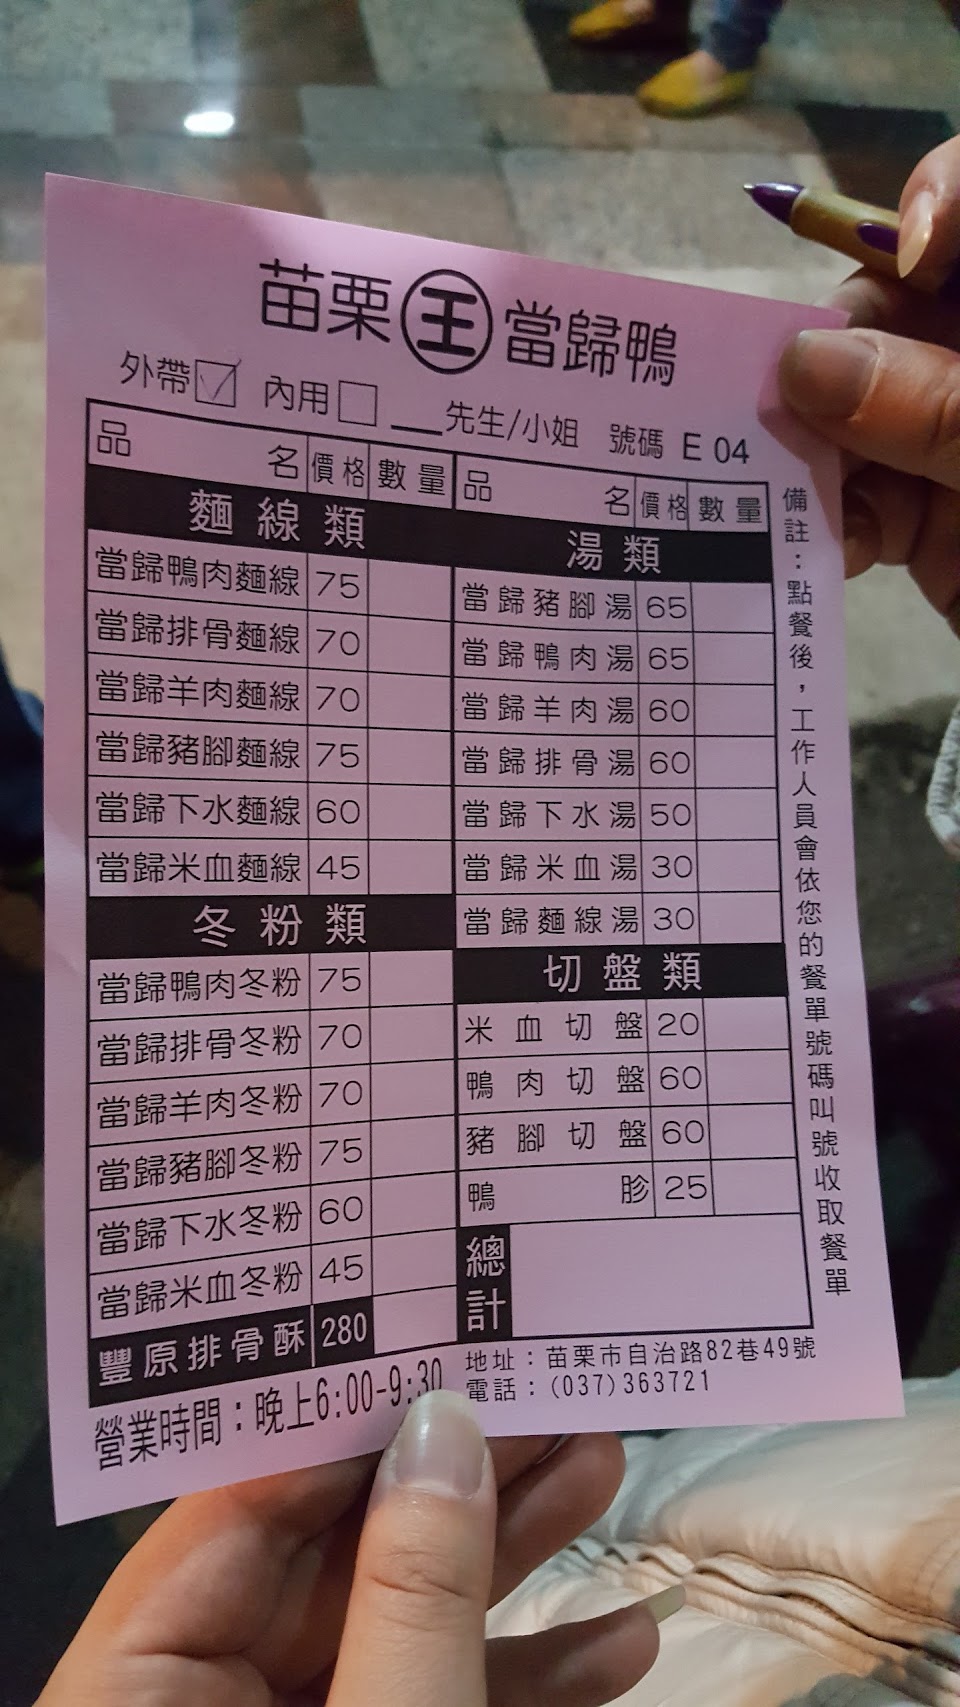 苗栗 王 當歸鴨
外帶 ☑ 內用 □ __先生/小姐 號碼 E 04
品名 價格 數量
麵線類
當歸鴨肉麵線 75
當歸排骨麵線 70
當歸羊肉麵線 70
當歸豬腳麵線 75
當歸下水麵線 60
當歸米血麵線 45
冬粉類
當歸鴨肉冬粉 75
當歸排骨冬粉 70
當歸羊肉冬粉 70
當歸豬腳冬粉 75
當歸下水冬粉 60
當歸米血冬粉 45
豐原排骨酥 280
品名 價格 數量
湯類
當歸豬腳湯 65
當歸鴨肉湯 65
當歸羊肉湯 60
當歸排骨湯 60
當歸下水湯 50
當歸米血湯 30
當歸麵線湯 30
切盤類
米血切盤 20
鴨肉切盤 60
豬腳切盤 60
鴨胗 25
總計
備註：點餐後，工作人員會依您的餐單號碼叫號收取餐單
營業時間：晚上6:00-9:30
地址：苗栗市自治路82巷49號
電話：(037)363721